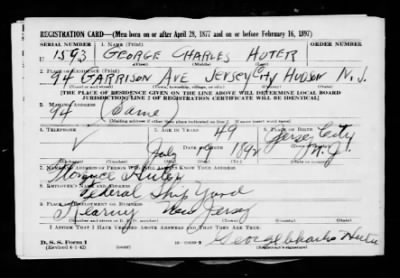 REGISTRATION CARD—(Men born on or after April 28, 1877 and on or before February 16, 1897)
SERIAL NUMBER 1. NAME (Print) ORDER NUMBER
U 1593 GEORGE CHARLES HUTER
(First) (Middle) (Last)
2. PLACE OF RESIDENCE (Print)
94 GARRISON AVE JERSEY CITY HUDSON N.J.
[THE PLACE OF RESIDENCE GIVEN ON THE LINE ABOVE WILL DETERMINE LOCAL BOARD
JURISDICTION; LINE 2 OF REGISTRATION CERTIFICATE WILL BE IDENTICAL]
3. MAILING ADDRESS
94 Same
[Mailing address if other than place indicated on line 2. If same insert word same]
4. TELEPHONE 5. AGE IN YEARS 6. PLACE OF BIRTH
49 Jersey City
DATE OF BIRTH
July 1892 N.J.
7. NAME AND ADDRESS OF PERSON WHO WILL ALWAYS KNOW YOUR ADDRESS
Florence Huter
8. EMPLOYER'S NAME AND ADDRESS
Federal Ship Yard
9. PLACE OF EMPLOYMENT OR BUSINESS
Kearny New Jersey
I AFFIRM THAT I HAVE VERIFIED ABOVE ANSWERS AND THAT THEY ARE TRUE.
D. S. S. Form 1
(Revised 4-1-42)
George Charles Huter